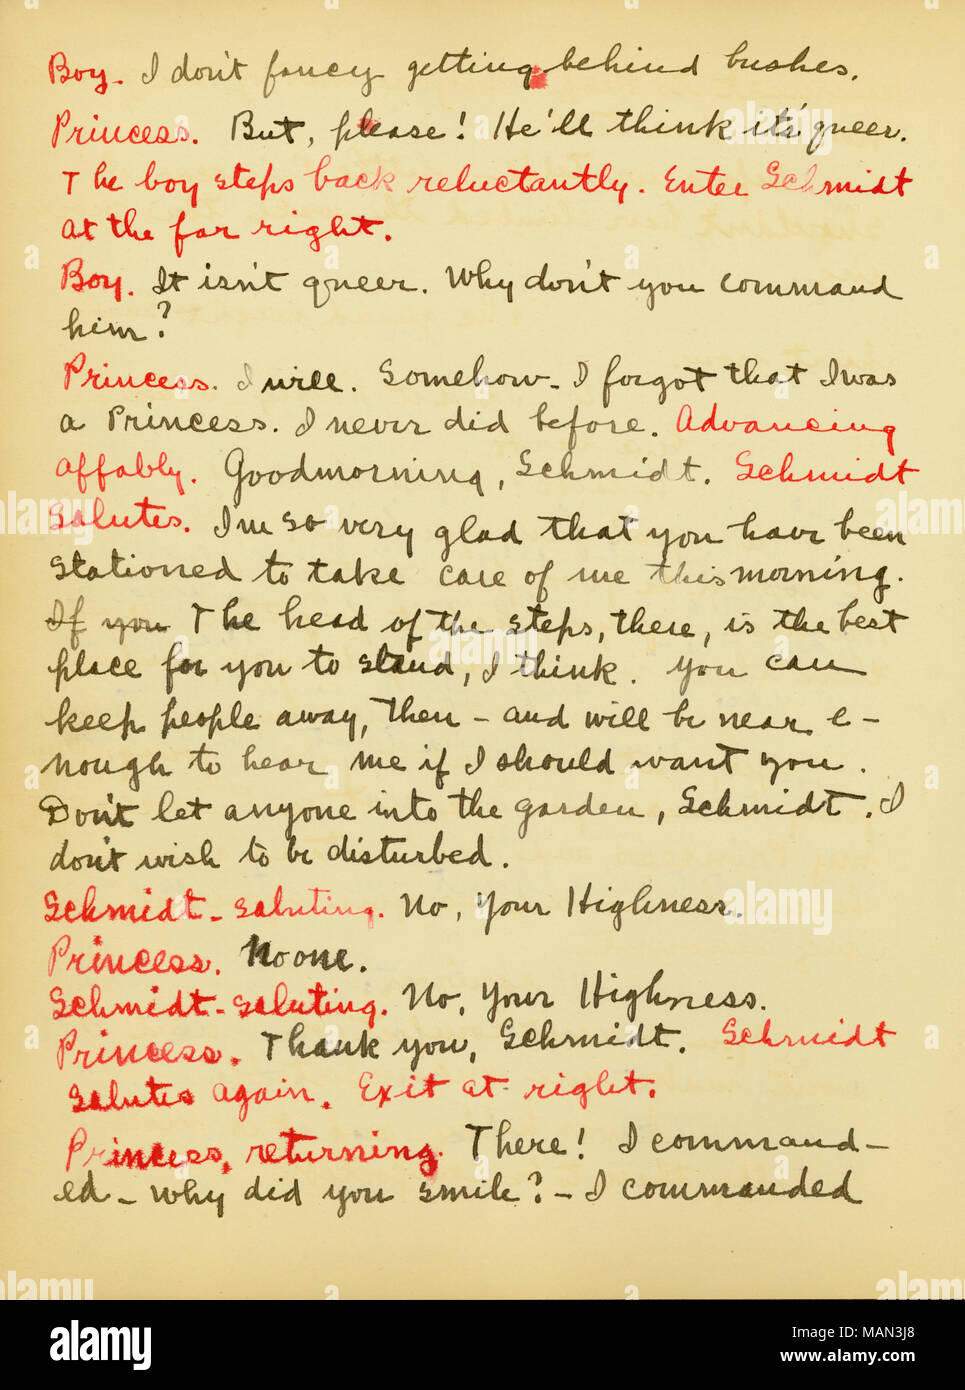 Boy. I don't fancy getting behind bushes.
Princess. But, please! He'll think it's queer.
The boy steps back reluctantly. Enter Schmidt
at the far right.
Boy. It isn't queer. Why don't you command
him?
Princess. I will. Somehow - I forgot that I was
a Princess. I never did before. Advancing
affably. Goodmorning, Schmidt. Schmidt
salutes. I'm so very glad that you have been
stationed to take care of me this morning.
If you The head of the steps, there, is the best
place for you to stand, I think. You can
keep people away, then - and will be near e-
nough to hear me if I should want you.
Don't let anyone into the garden, Schmidt. I
don't wish to be disturbed.
Schmidt - saluting. No, Your Highness.
Princess. No one.
Schmidt - saluting. No, Your Highness.
Princess. Thank you, Schmidt. Schmidt
salutes again. Exit at right.
Princess, returning. There! I command-
ed - why did you smile? - I commanded
alamy
Image ID: MAN3J8
www.alamy.com